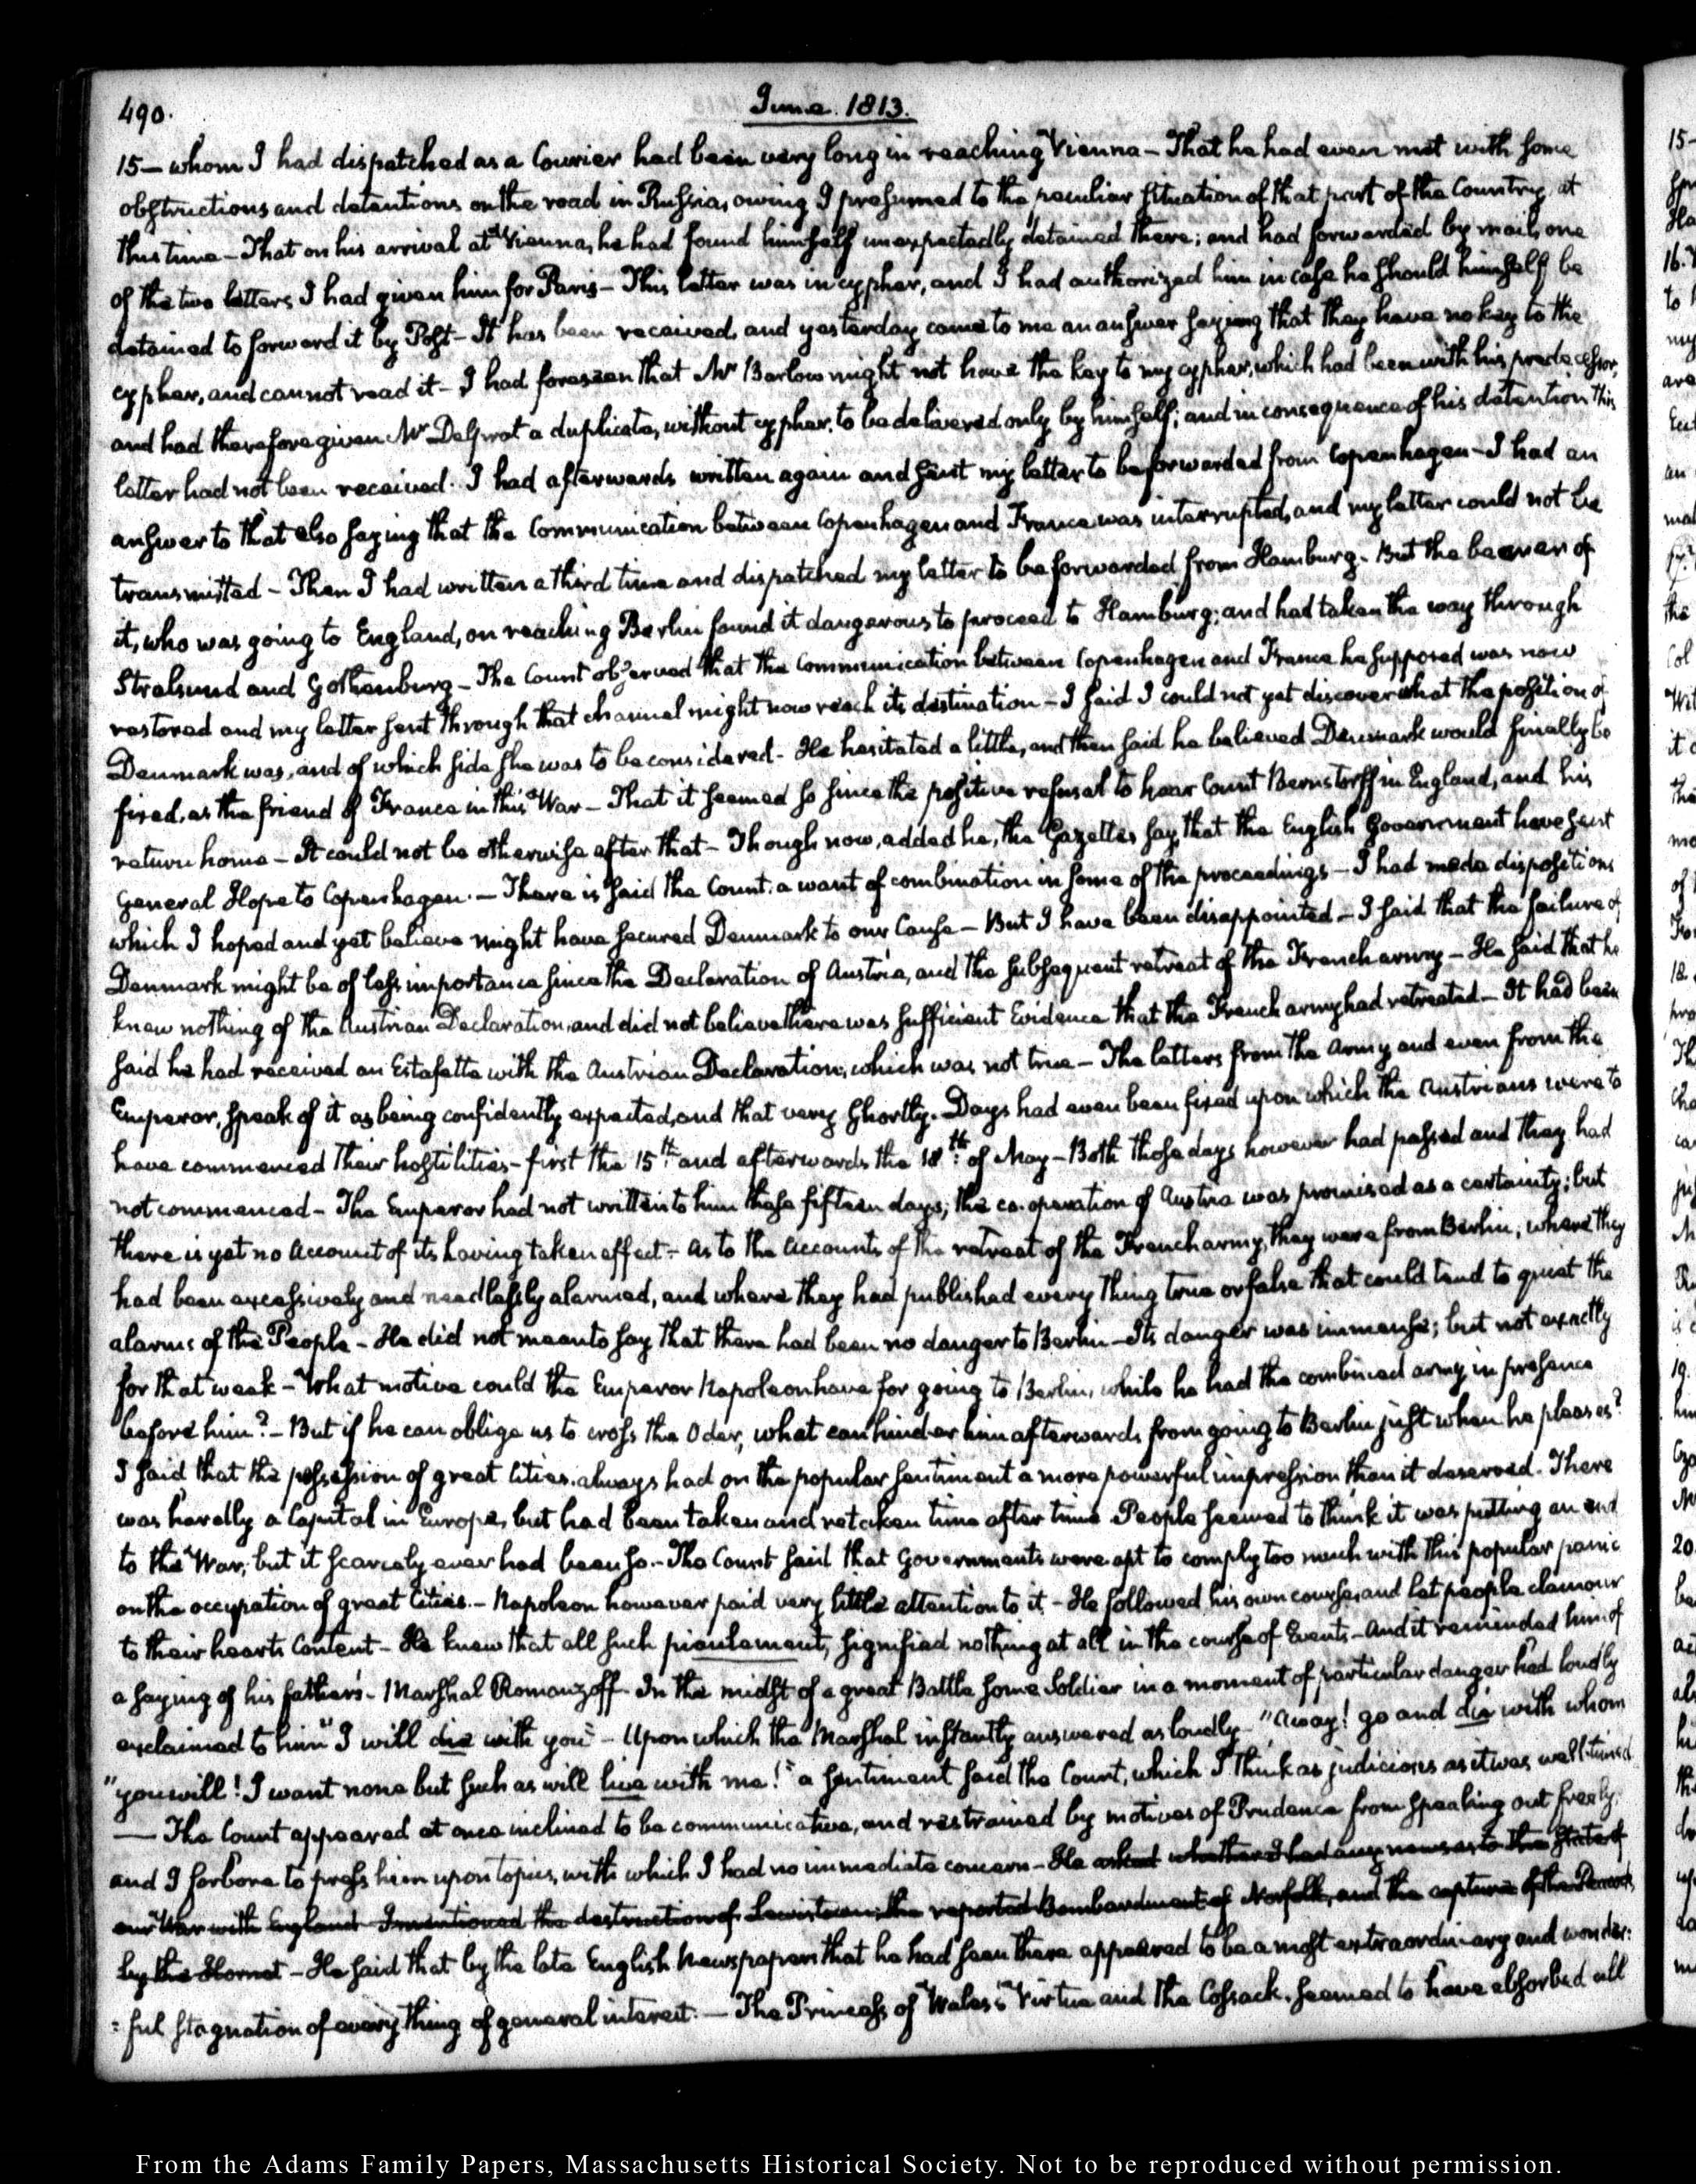 490.
June. 1813.
15— whom I had dispatched as a Courier had been very long in reaching Vienna – That he had even met with some
obstructions and detentions on the road in Russia, owing I presumed to the peculiar situation of that part of the Country, at
this time – That on his arrival at Vienna, he had found himself unexpectedly detained there; and had forwarded by mail, one
of the two letters I had given him for Paris – This letter was in cypher, and I had authorized him in case he should himself be
detained to forward it by Post – It has been received, and yesterday came to me an answer saying that they have no key to the
cypher, and cannot read it – I had foreseen that Mr Barlow might not have the key to my cypher, which had been with his predecessor,
and had therefore given Mr Delprat a duplicate, without cypher, to be delivered only by himself; and in consequence of his detention this
letter had not been received. I had afterwards written again and sent my letter to be forwarded from Copenhagen – I had an
answer to that also saying that the Communication between Copenhagen and France was interrupted, and my letter could not be
transmitted – Then I had written a third time and dispatched my letter to be forwarded from Hamburg. But the bearer of
it, who was going to England, on reaching Berlin found it dangerous to proceed to Hamburg; and had taken the way through
Stralsund and Gothenburg – The Count observed that the Communication between Copenhagen and France he supposed was now
restored and my letter sent through that channel might now reach its destination – I said I could not yet discover what the position of
Denmark was, and of which side she was to be considered – He hesitated a little, and then said he believed Denmark would finally be
fixed, as the friend of France in this War – That it seemed so since the positive refusal to hear Count Bernstorff in England, and his
return home – It could not be otherwise after that – Though now, added he, the Gazettes say, that the English Government have sent
General Hope to Copenhagen. — There is said the Count, a want of combination in some of the proceedings – I had made dispositions
which I hoped and yet believe might have secured Denmark to our Cause – But I have been disappointed – I said that the failure of
Denmark might be of less importance since the Declaration of Austria, and the subsequent retreat of the French army – He said that he
knew nothing of the Austrian Declaration, and did not believe there was sufficient Evidence that the French army had retreated – It had been
said he had received an Estafette with the Austrian Declaration, which was not true – The letters from the Army and even from the
Emperor, speak of it as being confidently expected, and that very shortly. Days had even been fixed upon which the Austrians were to
have commenced their hostilities – first the 15th and afterwards the 18th of May – Both those days however had passed and they had
not commenced – The Emperor had not written to him these fifteen days; the co-operation of Austria was promised as a certainty; but
there is yet no Account of its having taken effect – As to the Accounts of the retreat of the French army, they were from Berlin, where they
had been excessively and needlessly alarmed, and where they had published every thing true or false that could tend to quiet the
alarms of the People – He did not mean to say that there had been no danger to Berlin – Its danger was immense; but not exactly
for that week – What motive could the Emperor Napoleon have for going to Berlin, while he had the combined army in presence
before him? – But if he can oblige us to cross the Oder, what can hinder him afterwards from going to Berlin just when he pleases?
I said that the possession of great Cities, always had on the popular sentiment a more powerful impression than it deserved. There
was hardly a Capital in Europe, but had been taken and retaken time after time. People seemed to think it was putting an end
to the War; but it scarcely ever had been so. – The Count said that Governments were apt to comply too much with this popular panic
on the occupation of great Cities. – Napoleon however paid very little attention to it – He followed his own course, and let people clamour
to their hearts Content – He knew that all such piaulement, signified nothing at all in the course of Events – And it reminded him of
a saying of his father's – Marshal Romanzoff. In the midst of a great Battle some Soldier in a moment of particular danger had loudly
exclaimed to him "I will die with you" – Upon which the Marshal instantly answered as loudly – "Away! go and die with whom
"you will! I want none but such as will live with me!" a sentiment said the Count, which I think as judicious as it was well-timed.
— The Count appeared at once inclined to be communicative, and restrained by motives of Prudence from speaking out freely;
and I forbore to press him upon topics, with which I had no immediate concern – He asked whether I had any news as to the State of
our War with England – I mentioned the destruction of Lewistown the reported Bombardment of Norfolk, and the capture of the Peacock
by the Hornet – He said that by the late English Newspapers that he had seen there appeared to be a most extraordinary and wonder:
:ful stagnation of every thing of general interest. — The Princess of Wales's Virtue and the Cossack, seemed to have absorbed all
From the Adams Family Papers, Massachusetts Historical Society. Not to be reproduced without permission.